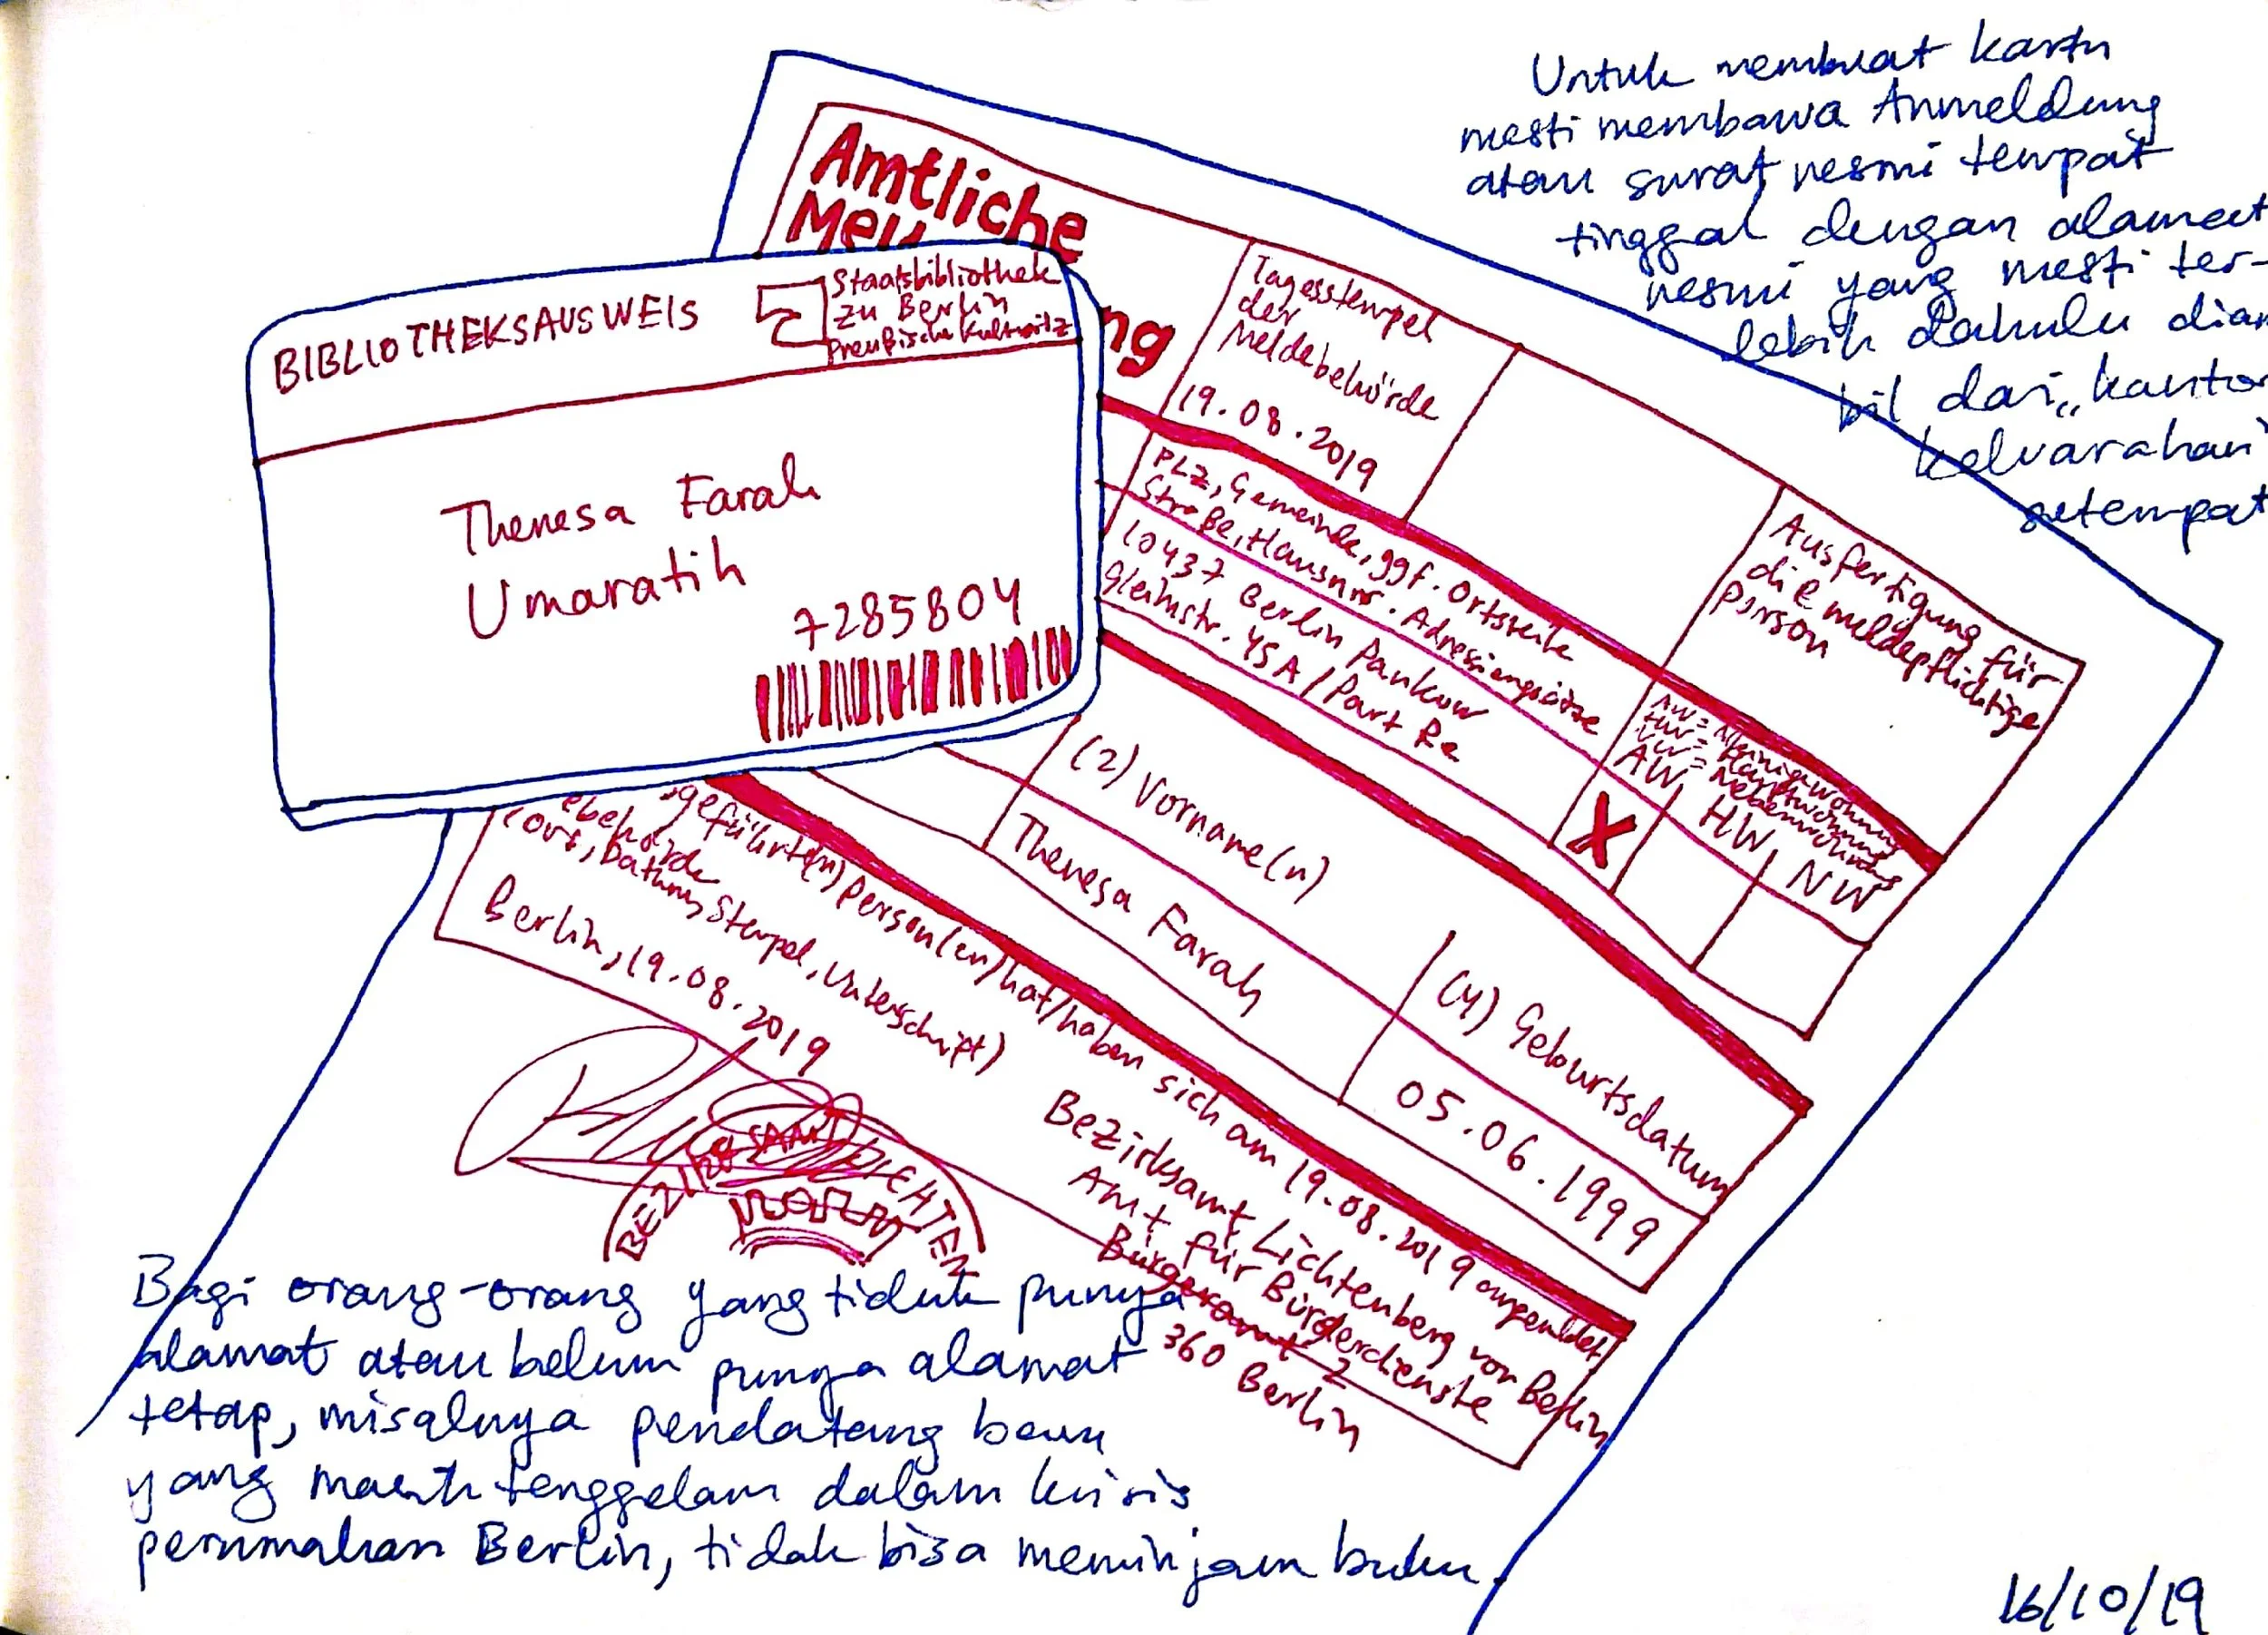 Untuk membuat kartu
mesti membawa Anmeldung
atau surat resmi tempat
tinggal dengan alamat
resmi yang mesti ter-
lebih dahulu diam
bil dari „kantor
kelurahan"
setempat
Amtliche
ng
Tagesstempel
der
Meldebehörde
19.08.2019
Ausfertigung für
die meldepflichtige
Person
BIBLIOTHEKSAUSWEIS
Staatsbibliothek
zu Berlin
Preußischer Kulturbesitz
Theresa Farah
Umaratih
7285804
PLZ, Gemeinde, ggf. Ortsteile
Straße, Hausnr. Adressierungszusätze
10437 Berlin Pankow
Gleimstr. 45A / Part Re
AW = Alleinige Wohnung
HW = Hauptwohnung
NW = Nebenwohnung
AW HW NW
X
(2) Vorname(n)
Theresa Farah
(4) Geburtsdatum
05.06.1999
geführte(n) Person(en) hat/haben sich am 19.08.2019 angemeldet
ebehörde
(Ort, Datum, Stempel, Unterschrift)
Berlin, 19.08.2019
Bezirksamt Lichtenberg von Berlin
Amt für Bürgerdienste
Bürgeramt 2
360 Berlin
BEZIRKSAMT
Bagi orang-orang yang tidak punya
alamat atau belum punya alamat
tetap, misalnya pendatang baru
yang masih tenggelam dalam krisis
perumahan Berlin, tidak bisa meminjam buku.
16/10/19